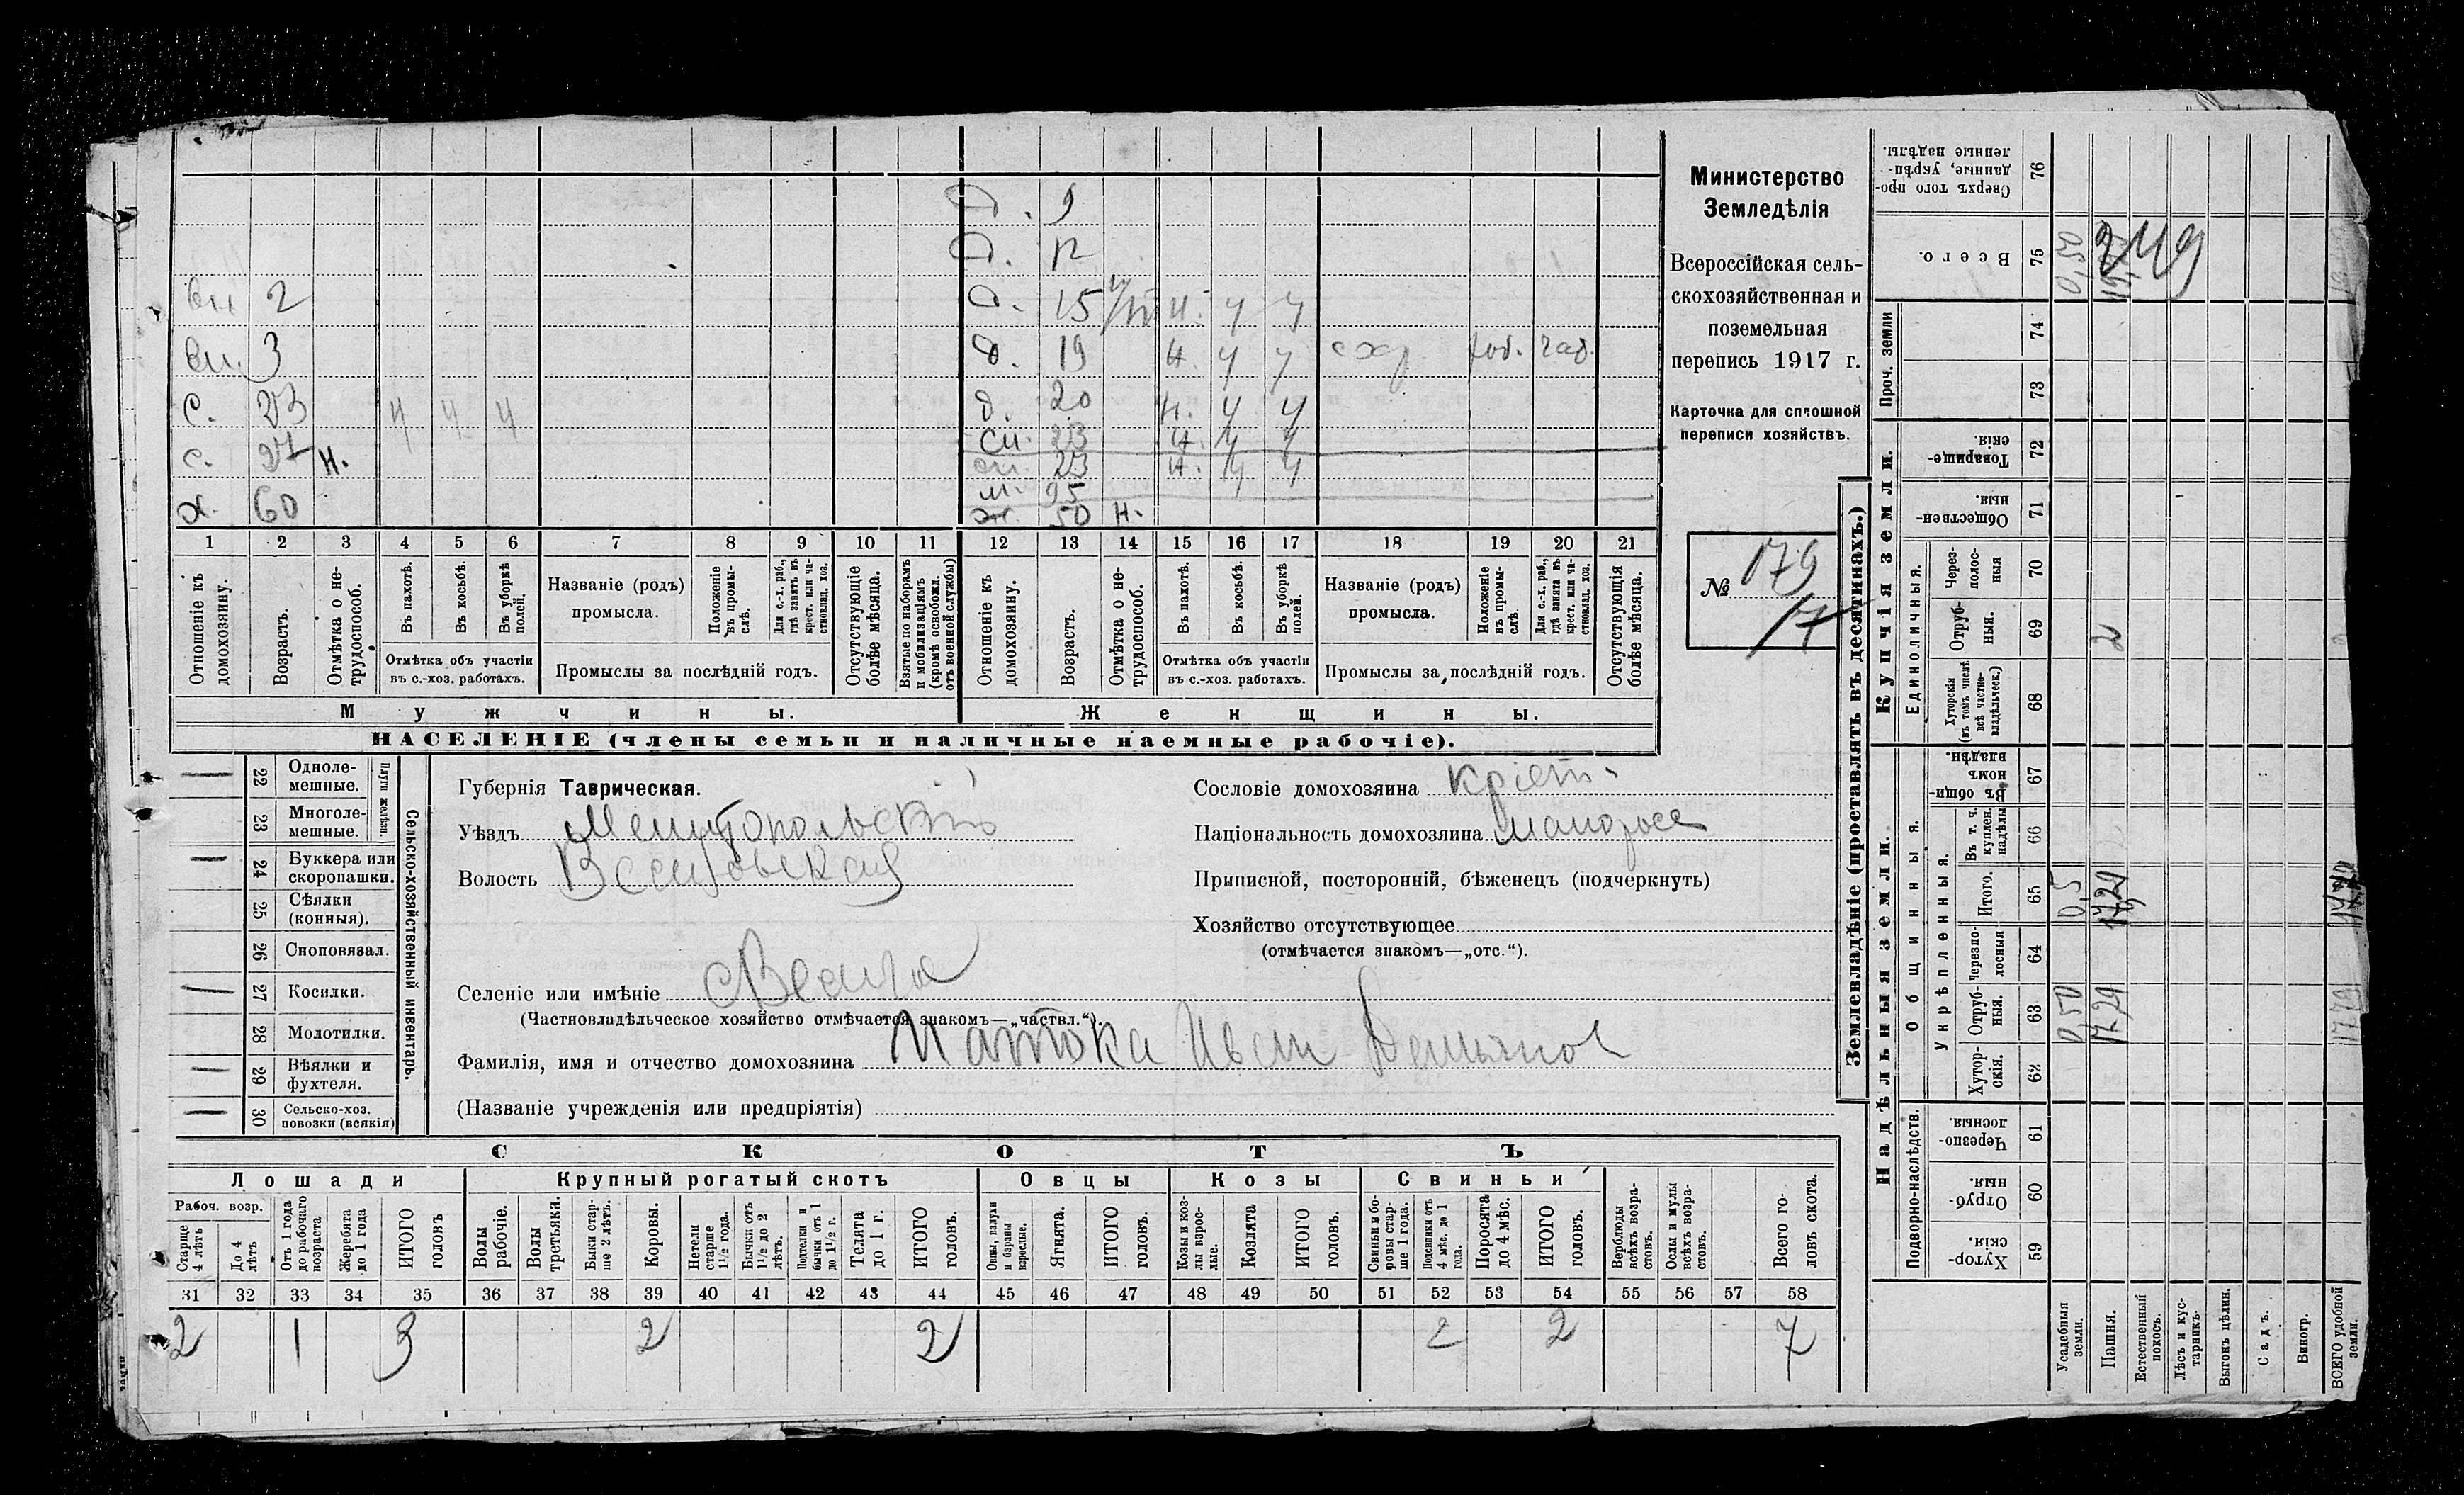 Д. 9
Д. 12
вн. 2 Д. 15 Ч. Ч Ч
вн. 3 Д. 19 Ч. Ч Ч схр раб. час.
С. 23 Ч Ч Ч Д. 20 Ч. Ч Ч
сн. 23 Ч. Ч Ч
С. 27 Н. сн. 23 Ч. Ч Ч
м. 95
Х. 60 ж. 50 Н.
1 2 3 4 5 6 7 8 9 10 11 12 13 14 15 16 17 18 19 20 21
Отношеніе къ домохозяину.
Возрастъ.
Отмѣтка о не-трудоспособ.
Въ пахотѣ.
Въ косьбѣ.
Въ уборкѣ полей.
Отмѣтка объ участіи
въ с.-хоз. работахъ.
Названіе (родъ)
промысла.
Положеніе въ промы-слѣ.
Для с.-х. раб., гдѣ занятъ въ крест. или ча-стновлад. хоз.
Промыслы за послѣдній годъ.
Отсутствующіе болѣе мѣсяца.
Взятые по наборамъ и мобилизаціямъ (кромѣ освобожд. отъ военной службы)
Отношеніе къ домохозяину.
Возрастъ.
Отмѣтка о не-трудоспособ.
Въ пахотѣ.
Въ косьбѣ.
Въ уборкѣ полей.
Отмѣтка объ участіи
въ с.-хоз. работахъ.
Названіе (родъ)
промысла.
Положеніе въ промы-слѣ.
Для с.-х. раб., гдѣ занята въ крест. или ча-стновлад. хоз.
Промыслы за послѣдній годъ.
Отсутствующія болѣе мѣсяца.
Мужчины. Женщины.
НАСЕЛЕНІЕ (члены семьи и наличные наемные рабочіе).
Министерство
Земледѣлія
Всероссійская сель-
скохозяйственная и
поземельная
перепись 1917 г.
Карточка для сплошной
переписи хозяйствъ.
№ 179
17
22 Одноле-мешные.
23 Многоле-мешные.
Плуги желѣзн.
24 Буккера или скоропашки.
25 Сѣялки (конныя).
26 Сноповязал.
27 Косилки.
28 Молотилки.
29 Вѣялки и фухтеля.
30 Сельско-хоз. повозки (всякія)
Сельско-хозяйственный инвентарь.
Губернія Таврическая.
Уѣздъ Мелитопольскій
Волость Веселовская
Селеніе или имѣніе с Весело
(Частновладѣльческое хозяйство отмѣчается знакомъ—„частвл.“).
Фамилія, имя и отчество домохозяина Матока Иван Демьянов
(Названіе учрежденія или предпріятія)
Сословіе домохозяина крест.
Національность домохозяина малоросс
Приписной, посторонній, бѣженецъ (подчеркнуть)
Хозяйство отсутствующее
(отмѣчается знакомъ—„отс.“).
СКОТЪ
Лошади Крупный рогатый скотъ Овцы Козы Свиньи
Рабоч. возр.
Старше 4 лѣтъ
До 4 лѣтъ
Отъ 1 года до рабочаго возраста
Жеребята до 1 года
ИТОГО головъ
Волы рабочіе.
Волы третьяки.
Быки стар-ше 2 лѣтъ.
Коровы.
Нетели старше 1½ года.
Бычки отъ 1½ до 2 лѣтъ.
Подтелки и бычки отъ 1 до 1½ г.
Телята до 1 г.
ИТОГО головъ.
Овцы, валухи и бараны взрослые.
Ягнята.
ИТОГО головъ.
Козы и коз-лы взрос-лые.
Козлята
ИТОГО головъ.
Свиньи и бо-ровы стар-ше 1 года.
Подсвинки отъ 4 мѣс. до 1 года.
Поросята до 4 мѣс.
ИТОГО головъ.
Верблюды всѣхъ возра-стовъ.
Ослы и мулы всѣхъ возра-стовъ.
Всего го-ловъ скота.
31 32 33 34 35 36 37 38 39 40 41 42 43 44 45 46 47 48 49 50 51 52 53 54 55 56 57 58
2 1 3 2 2 2 2 7
Землевладѣніе (проставлять въ десятинахъ.)
Купчія земли.
Надѣльныя земли.
Сверхъ того про-данные, укрѣп-ленные надѣлы. 76
Всего. 75 0,50 249
Проч. земли 74
73
Товарище-скія. 72
Обществен-ныя. 71
Единоличныя.
Через-полос-ныя 70
Отруб-ныя. 69 2
Хуторскія (въ томъ числѣ всѣ частно-владѣльческ.) 68
Общинныя.
Въ общи-номъ владѣн. 67
Укрѣпленныя.
Въ т. ч. куплен. надѣлы 66
Итого. 65 0,5 17,29
Черезпо-лосныя 64
Отруб-ныя. 63 0,50 17,29 17,79
Хутор-скія. 62
Подворно-наслѣдств.
Черезпо-лосныя. 61
Отруб-ныя. 60
Хутор-скія. 59
Усадебныя земли.
Пашня.
Естественный покосъ.
Лѣсъ и кус-тарникъ.
Выгонъ цѣлин.
Садъ.
Виногр.
ВСЕГО удобной земли.